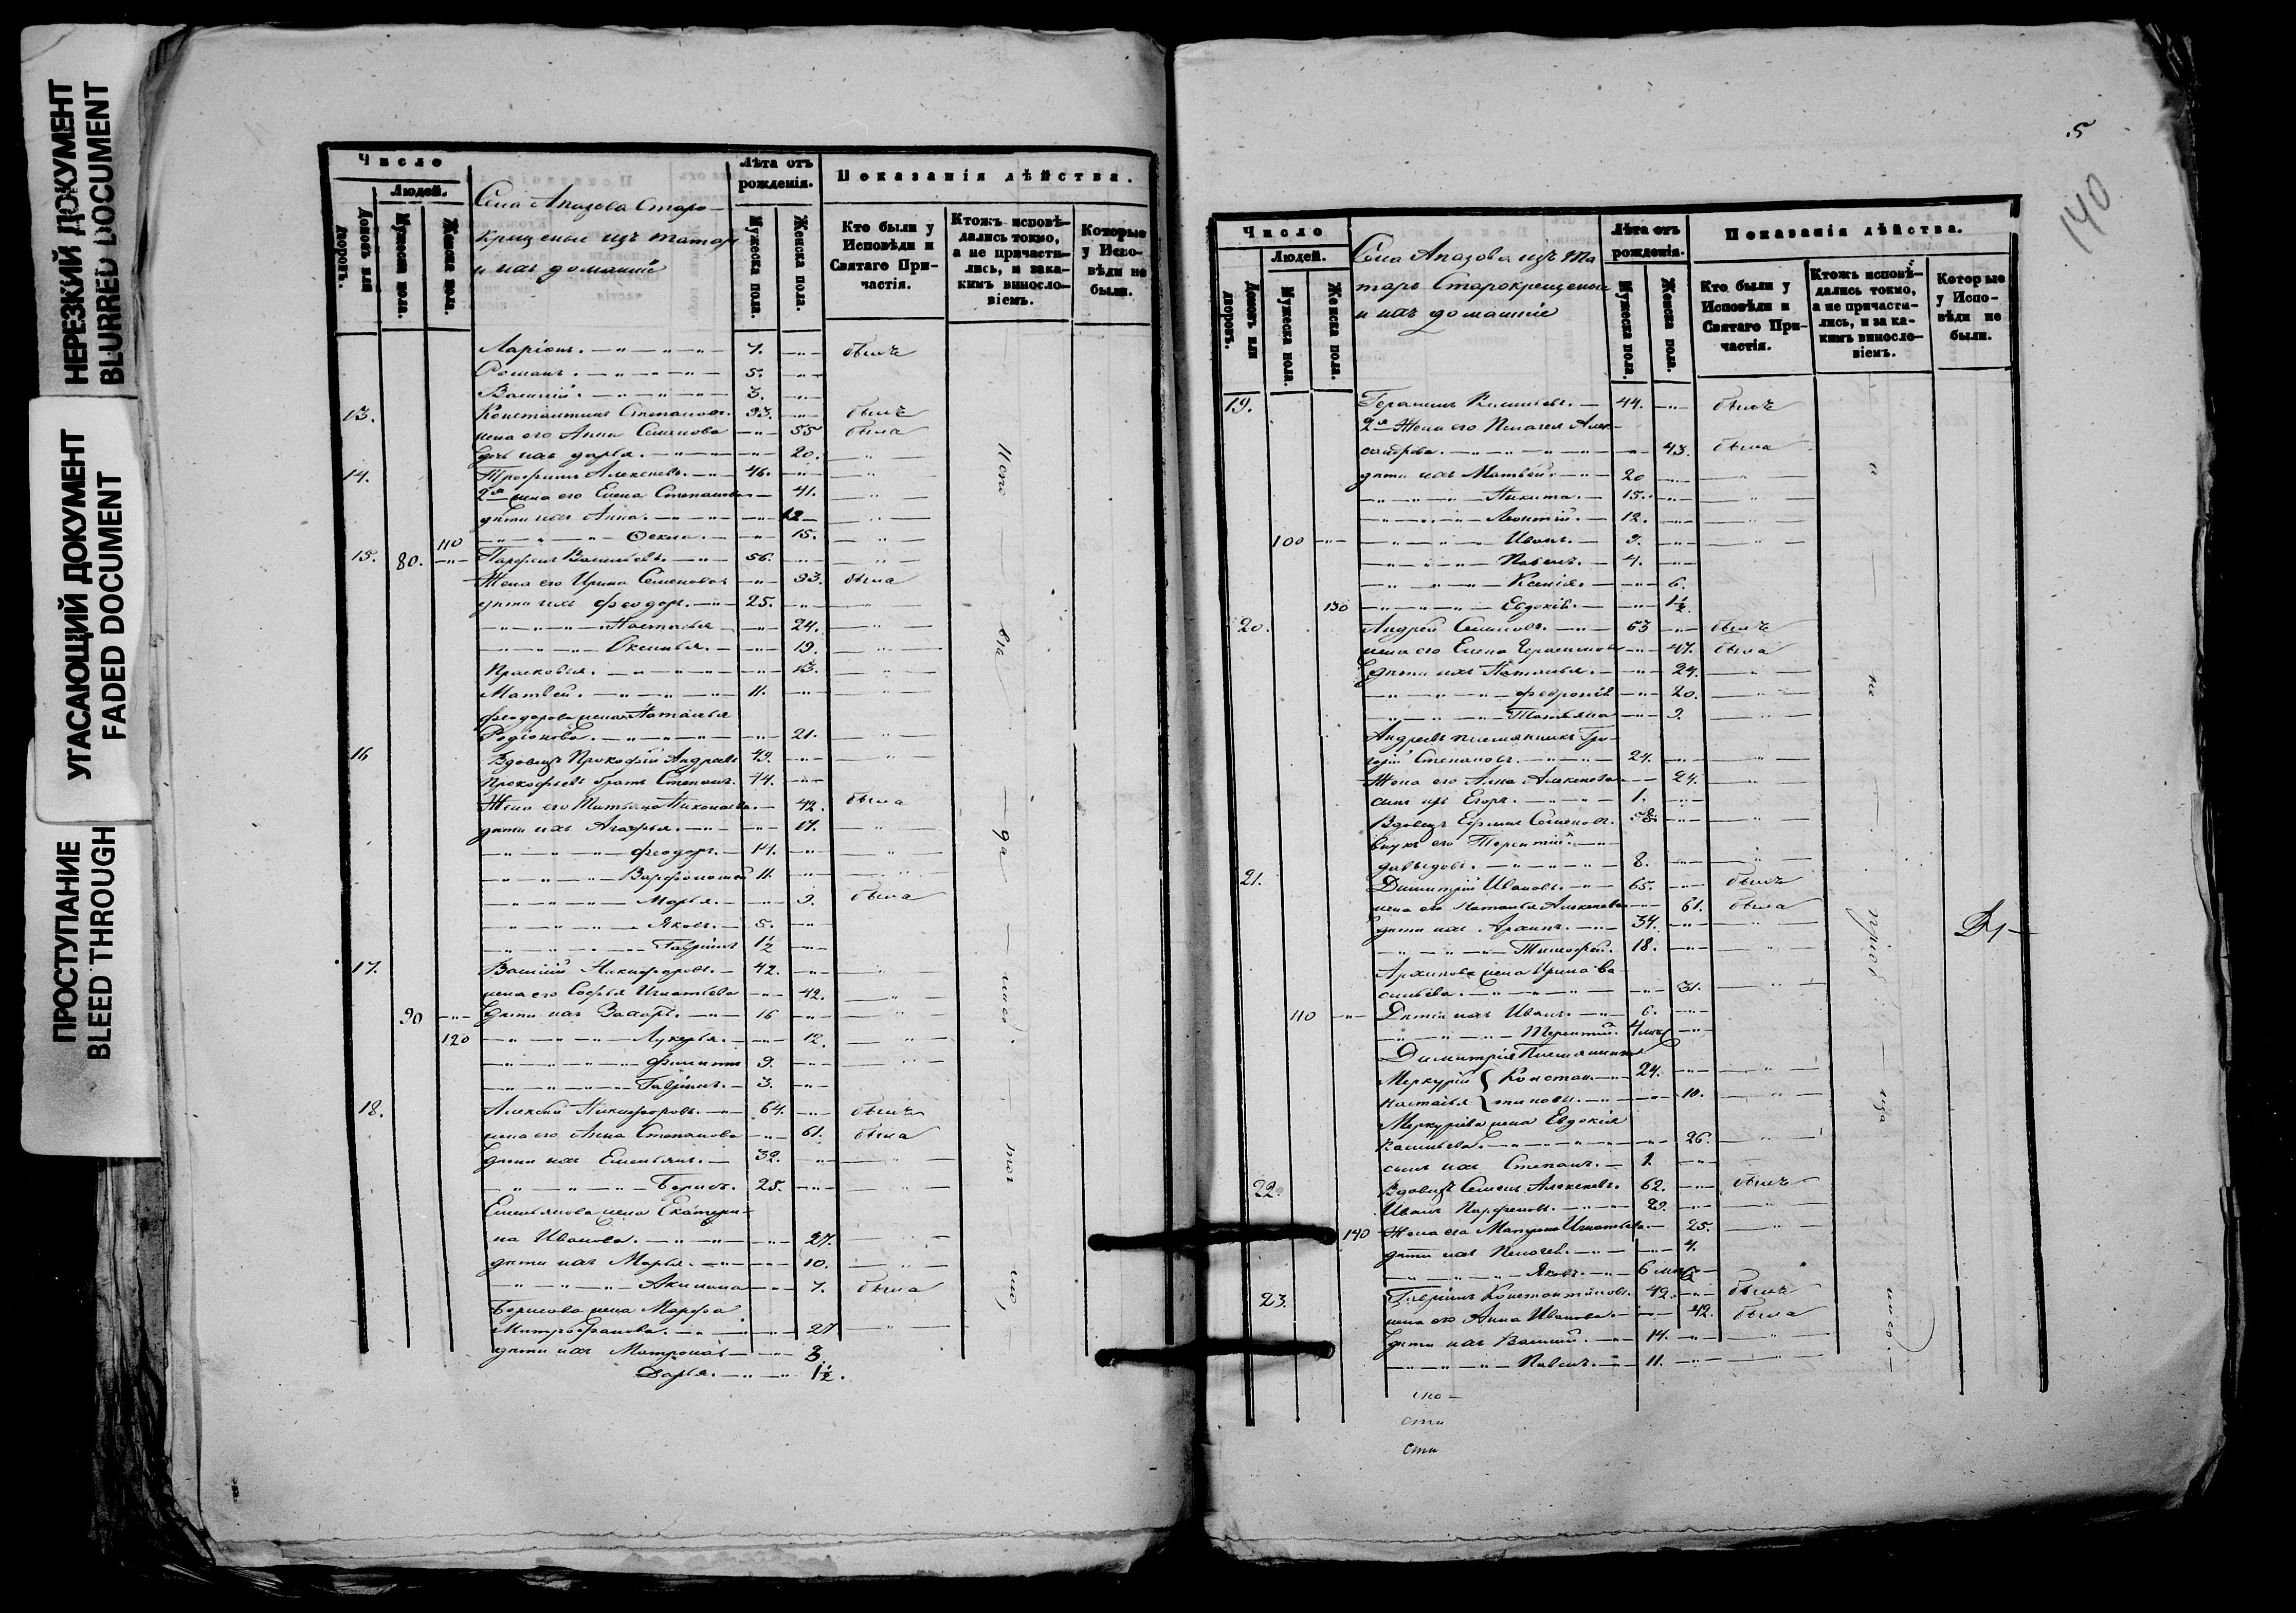 НЕРЕЗКИЙ ДОКУМЕНТ
BLURRED DOCUMENT
УГАСАЮЩИЙ ДОКУМЕНТ
FADED DOCUMENT
ПРОСТУПАНИЕ
BLEED THROUGH
Число
Людей.
Домовъ или дворовъ.
Мужеска пола.
Женска пола.
Села Апазова Старо-
крещеные изъ татаръ
и ихъ домашніе
Лѣта отъ рожденія.
Мужеска пола.
Женска пола.
Показанія дѣйства.
Кто были у Исповѣди и Святаго При-частія.
Ктожъ исповѣ-дались токмо, а не причасти-лись, и зака-кимъ виносло-віемъ.
Которые у Испо-вѣди не были.
Ларіонъ. 7. былъ
Романъ. 5.
Василій. 3.
13. Константинъ Степановъ. 93. былъ
жена его Анна Семенова 55 была
дочь ихъ Дарья. 20.
14. Трофимъ Алексеевъ. 46.
2я жена его Елена Степанова 41.
дѣти ихъ Анна. 12
110 Фекла. 15.
15. 80. Парфенъ Васильевъ. 56.
Жена его Ирина Семенова 93. была
дѣти ихъ Феодоръ. 25.
Наталья 24.
Оксинья. 19.
Прасковья. 13.
Матвей. 11.
Феодорова жена Наталья
Родіонова. 21.
16 Вдовецъ Прокофій Андреевъ 49.
Прокофьевъ братъ Степанъ. 44.
Жена его Татьяна Николаева. 42. была
дѣти ихъ Агафья. 17.
Феодоръ. 14.
Варфоломей 11.
Марья. 9. была
Яковъ. 5.
Гаврилъ 1½
17. Василій Никифоровъ. 42.
жена его Софья Игнатьева 42.
90 дѣти ихъ Захаръ. 16
120 Лукерья. 12.
Филиппъ 9.
Гаврилъ. 3.
18. Алексей Никифоровъ. 64. былъ
жена его Анна Степанова 61. была
дѣти ихъ Емельянъ. 32.
Борисъ. 25.
Емельянова жена Екатери-
на Иванова. 27.
дѣти ихъ Марья. 10.
Акилина 7. была
Борисова жена Марфа
Митрофанова. 27
дѣти ихъ Матрона 3
Дарья. 1½.
5
140
Число
Людей.
Домовъ или дворовъ.
Мужеска пола.
Женска пола.
Села Апазова изъ та
таръ Старокрещеные
и ихъ домашніе
Лѣта отъ рожденія.
Мужеска пола.
Женска пола.
Показанія дѣйства.
Кто были у Исповѣди и Святаго При-частія.
Ктожъ исповѣ-дались токмо, а не причасти-лись, и за ка-кимъ винослo-віемъ.
Которые у Испо-вѣди не были.
19. Герасимъ 44. былъ
2я Жена его Пелагея Алек-
сандрова. 43. была
дѣти ихъ Матвей. 20
Никита. 15.
Леонтій. 12.
100 Иванъ. 9.
Павелъ. 4.
Ксенія. 6.
130 Евдокія. 1½
20. Андрей Семеновъ. 53 былъ
жена его Елена Герасимова 47. была
дѣти ихъ Наталья. 24.
Февронія 20.
Татьяна 9.
Андреевъ племянникъ Гри-
горій Степановъ. 24.
Жена его Анна Алексеева 24.
сынъ ихъ Егоръ. 1.
Вдовецъ Ефимъ Семеновъ. 58.
внукъ его Терентій.
Давыдовъ. 8.
21. Димитрій Ивановъ. 65. былъ
жена его Наталья Алексеева 61. была
дѣти ихъ Архипъ. 34.
Тимофей. 18.
Архипова жена Ирина Ва-
сильева. 31.
110 Дѣти ихъ Иванъ. 6.
Терентій. 4
Димитрія Племянники
Меркурій } Констан- 24.
Настасья } тиновы. 10.
Меркуріева жена Евдокія
Васильева. 26.
сынъ ихъ Степанъ. 1.
22. Вдовецъ Семенъ Алексеевъ. 62. былъ
Иванъ Парфеновъ. 29.
140 Жена его Матрона Игнатьева 25.
дѣти ихъ Пелагея. 4.
Яковъ. 6
23. Гаврилъ Константиновъ. 42. былъ
жена его Анна Иванова. 42. была
дѣти ихъ Василій. 14.
Павелъ. 11.